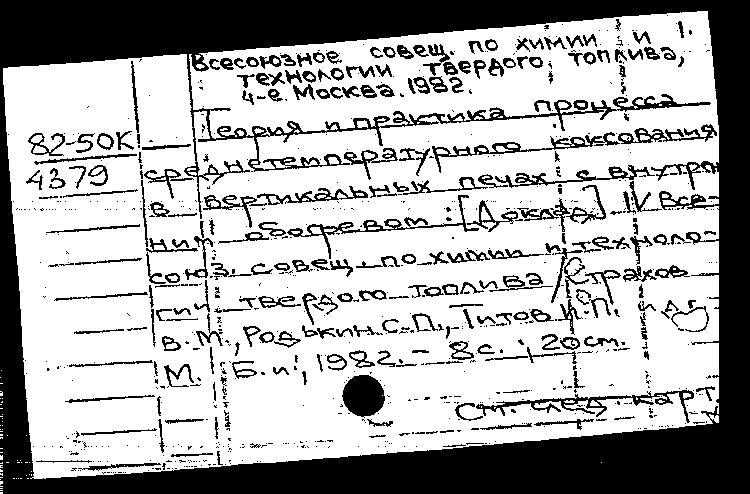 Всесоюзное совещ. по химии и 1.
технологии твердого топлива,
4-е. Москва. 1982.
Теория и практика процесса
82-50К
среднетемпературного коксования
4379
в вертикальных печах с внутрен
ним обогревом : [Доклад] IV Все-
союз. совещ. по химии и техноло-
гии твердого топлива / Страхов
В.М., Родькин С.П., Титов И.П. и др.
М. Б.и., 1982. - 8с. ; 20 ст.
См. след. карт.